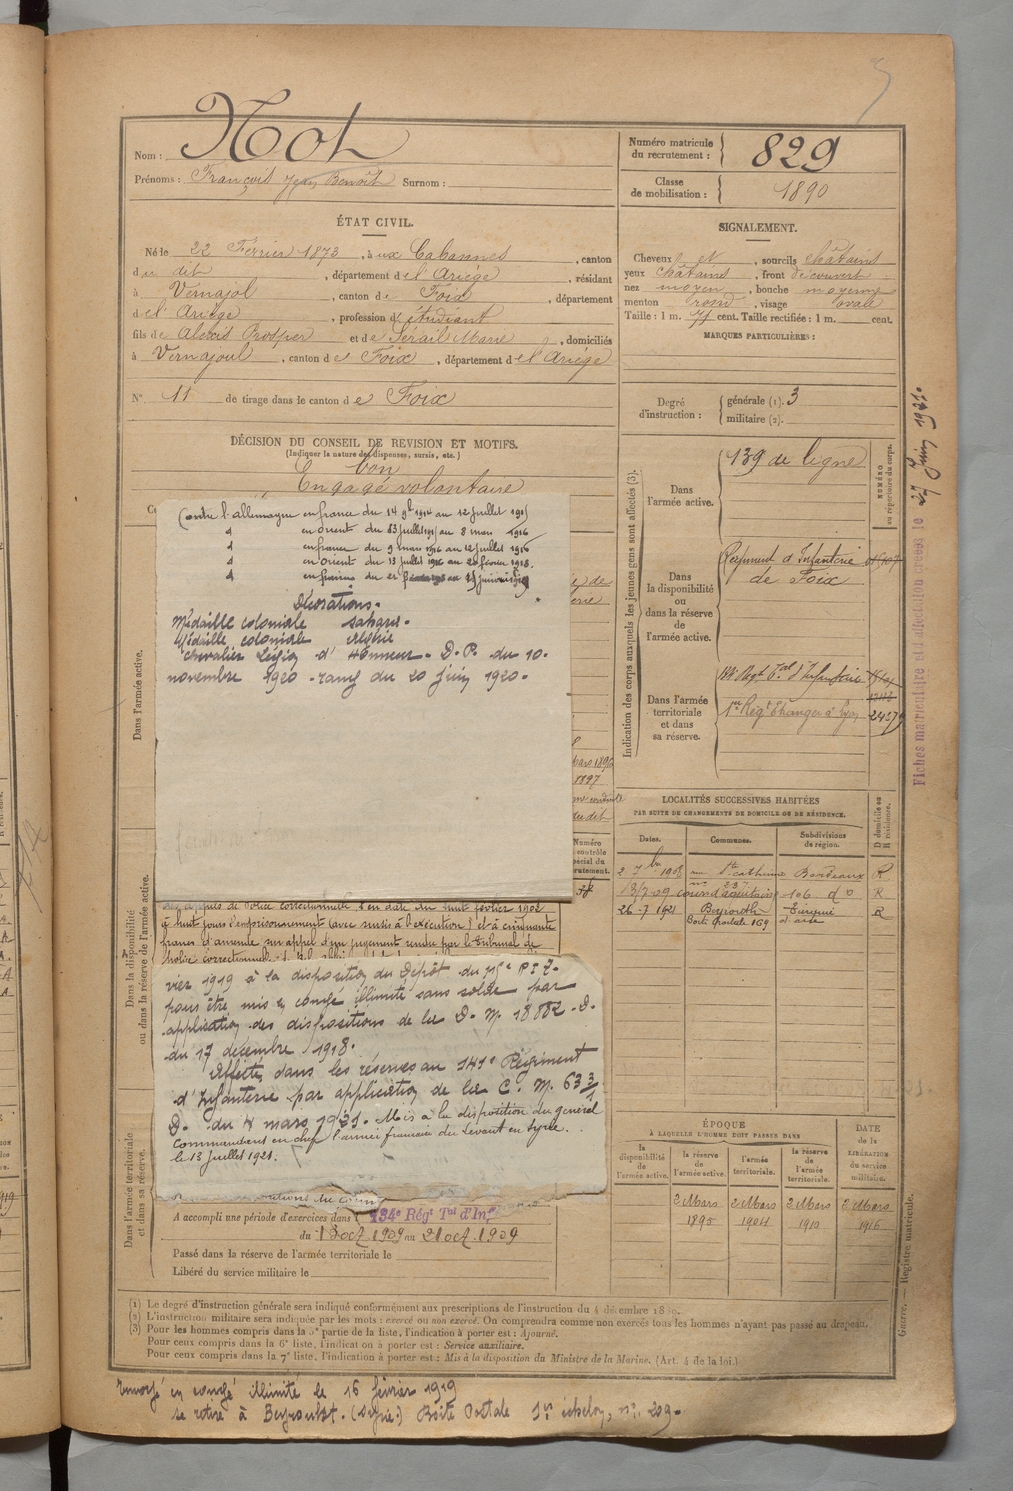 Nom : Not
Prénoms : François Jean Benoît Surnom :
Numéro matricule du recrutement : 829
Classe de mobilisation : 1890
ÉTAT CIVIL.
Né le 22 Février 1873, à ux Cabannes, canton
du dit, département de l'Ariège, résidant
à Vernajol, canton de Foix, département
de l'Ariège, profession d'étudiant
fils de Alexis Prosper et de Sérail Marie, domiciliés
à Vernajoul, canton de Foix, département de l'Ariège
N° 11 de tirage dans le canton de Foix
SIGNALEMENT.
Cheveux et, sourcils châtains
yeux châtains, front découvert
nez moyen, bouche moyenne
menton rond, visage ovale
Taille : 1 m. 71 cent. Taille rectifiée : 1 m. cent.
MARQUES PARTICULIÈRES :
Degré d'instruction : générale (1). 3
militaire (2).
DÉCISION DU CONSEIL DE REVISION ET MOTIFS.
(Indiquer la nature des dispenses, sursis, etc.)
bon
Engagé volontaire
Contre l'allemagne en france du 14 9bre 1914 au 12 juillet 1915
d en orient du 13 juillet 1915 au 8 mars 1916
d en france du 9 mars 1916 au 12 juillet 1916
d en orient du 13 juillet 1916 au 20 février 1918.
d en france du
Décorations.
Médaille coloniale sahara.
Médaille coloniale Algérie
Chevalier Légion d'Honneur. D. P. du 10.
novembre 1920. rang du 20 juin 1920.
Dans l'armée active.
Dans la disponibilité ou dans la réserve de l'armée active.
Dans l'armée territoriale et dans sa réserve.
Indication des corps auxquels les jeunes gens sont affectés (3).
NUMÉRO au répertoire du corps.
Dans l'armée active. 139 de ligne
Dans la disponibilité ou dans la réserve de l'armée active. Régiment d'Infanterie de Foix
Dans l'armée territoriale et dans sa réserve. 134 Régt Tal d'Infanterie
1er Régt Étranger à Lyon
Fiches matriculaire et d'affectation créées le 27 Juin 1921.
mars 1896
1897
du dit
Numéro contrôle spécial du recrutement.
LOCALITÉS SUCCESSIVES HABITÉES
PAR SUITE DE CHANGEMENTS DE DOMICILE OU DE RÉSIDENCE.
Dates. Communes. Subdivisions de région. D domicile ou R résidence.
2 7bre 1908 Ste catherine Bordeaux R
13/7-09 cours d'aquitaine 106 do R
26-7 1921 Beyrouth R
Boite Postale 169
huit février 1902
à huit jours d'emprisonnement (avec sursis à l'exécution) et à cinquante
francs d'amende sur appel d'un jugement rendu par le tribunal de
Police correctionnelle
vier 1919 à la disposition du Dépôt du
pour être mis en congé illimité sans solde par
application des dispositions de la D. M. 18882. D.
du 17 décembre 1918.
Affecté, dans les réserves au 141e Régiment
d'Infanterie par application de la C. M. 633
D. du 4 mars 1921. Mis à la disposition du général
Commandant en chef l'armée française du Levant en Syrie.
le 13 juillet 1921.
A accompli une période d'exercices dans l 134e Régt Tal d'Inf.
du 13 oct 1909 au 21 oct. 1909
Passé dans la réserve de l'armée territoriale le
Libéré du service militaire le
ÉPOQUE
À LAQUELLE L'HOMME DOIT PASSER DANS
la disponibilité de l'armée active. la réserve de l'armée active. l'armée territoriale. la réserve de l'armée territoriale. DATE de la LIBÉRATION du service militaire.
2 Mars 1895 2 Mars 1904 2 Mars 1910 2 Mars 1916
Guerre. — Registre matricule.
(1) Le degré d'instruction générale sera indiqué conformément aux prescriptions de l'instruction du 4 décembre 1889.
(2) L'instruction militaire sera indiquée par les mots : exercé ou non exercé. On comprendra comme non exercés tous les hommes n'ayant pas passé au drapeau.
(3) Pour les hommes compris dans la 5e partie de la liste, l'indication à porter est : Ajourné.
Pour ceux compris dans la 6e liste, l'indication à porter est : Service auxiliaire.
Pour ceux compris dans la 7e liste, l'indication à porter est : Mis à la disposition du Ministre de la Marine. (Art. 4 de la loi.)
Renvoyé en congé illimité le 16 février 1919
se retire à Beyrouth. (Syrie.) Boite Postale 1er échelon, n° 209.